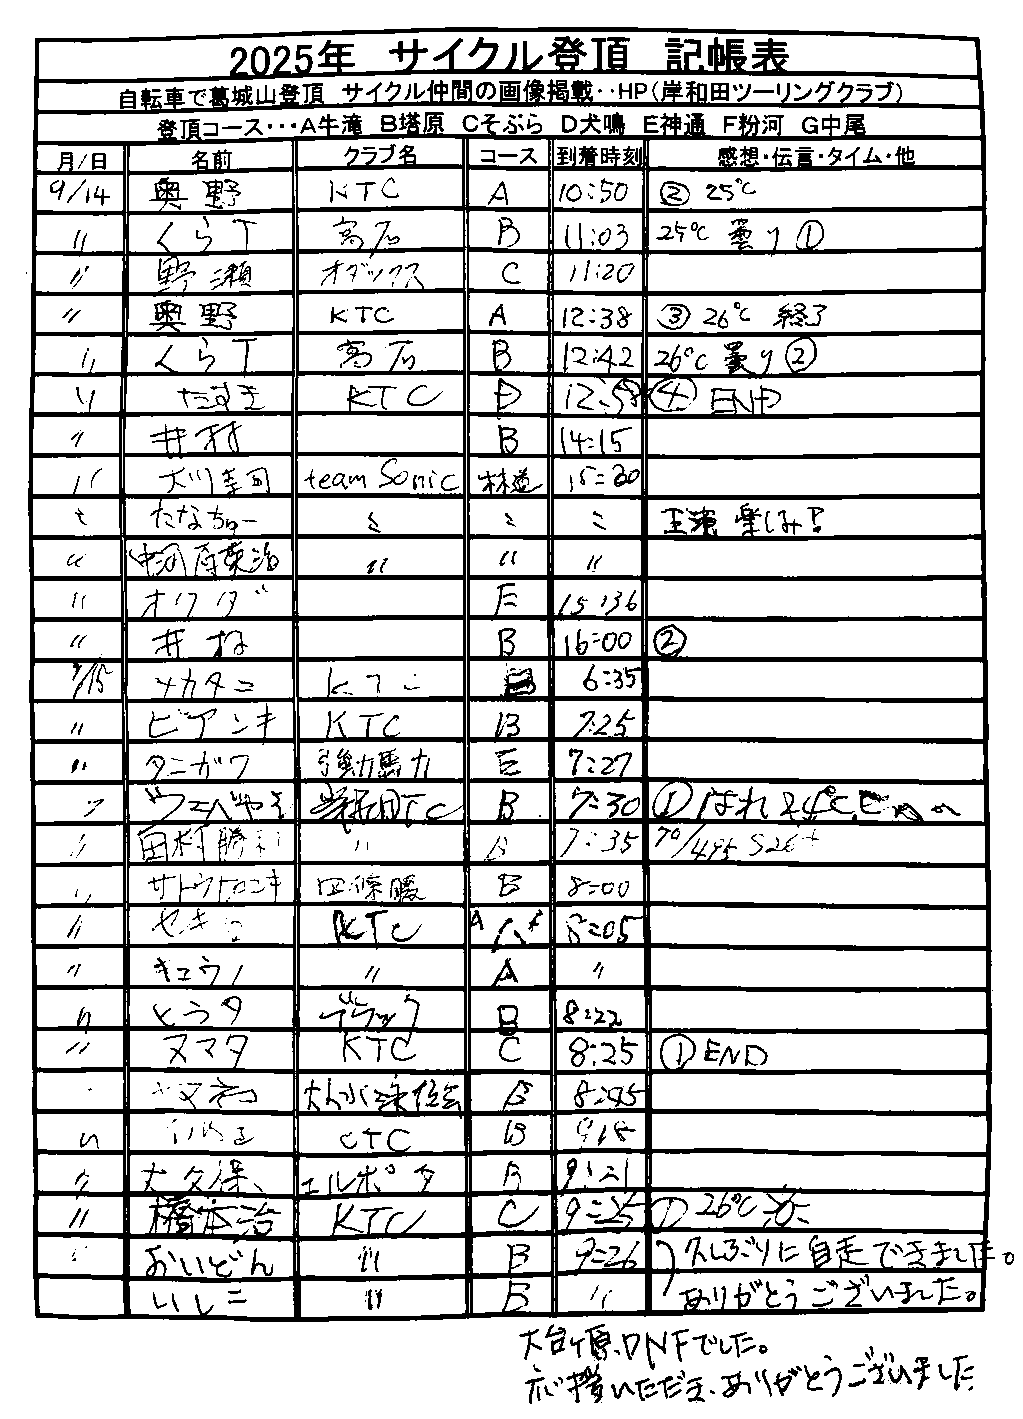 2025年 サイクル登頂 記帳表
自転車で葛城山登頂 サイクル仲間の画像掲載‥HP(岸和田ツーリングクラブ)
登頂コース･･･A牛滝 B塔原 Cそぶら D犬鳴 E神通 F粉河 G中尾
月/日 名前 クラブ名 コース 到着時刻 感想・伝言・タイム・他
9/14 奥野 KTC A 10:50 ② 25℃
〃 くらT 高石 B 11:03 25℃ 曇り ①
〃 野瀬 オダックス C 11:20
〃 奥野 KTC A 12:38 ③ 26℃ 終了
〃 くらT 高石 B 12:42 26℃ 曇り ②
〃 たすき KTC D 12:58 ④ END
〃 井村 B 14:15
〃 大川 team Sonic 林道 15:30
〃 たなちゅー 〃 〃 〃 楽しみ!
〃 〃 〃 〃
〃 オクダ E 15:36
〃 井村 B 16:00 ②
9/15 ソカタニ KTC B 6:35
〃 ビアンキ KTC B 7:25
〃 タニガワ 強動馬力 E 7:27
〃 B 7:30 ① はれ 24℃
〃 田村勝 〃 B 7:35
〃 サトウ 四條畷 B 8:00
〃 セキ KTC 8:05
〃 キュウノ 〃 A 〃
〃 ヒラタ ブラック B 8:22
〃 ヌマタ KTC C 8:25 ① END
B 8:45
〃 CTC B 9:18
〃 大久保 エルポタ B 9:21
〃 橋本治 KTC C 9:25 26℃
〃 おいどん 〃 B 9:26 久しぶりに自走できました。
いしこ 〃 B 〃 ありがとうございました。
大台ヶ原、DNFでした。
応援いただき、ありがとうございました